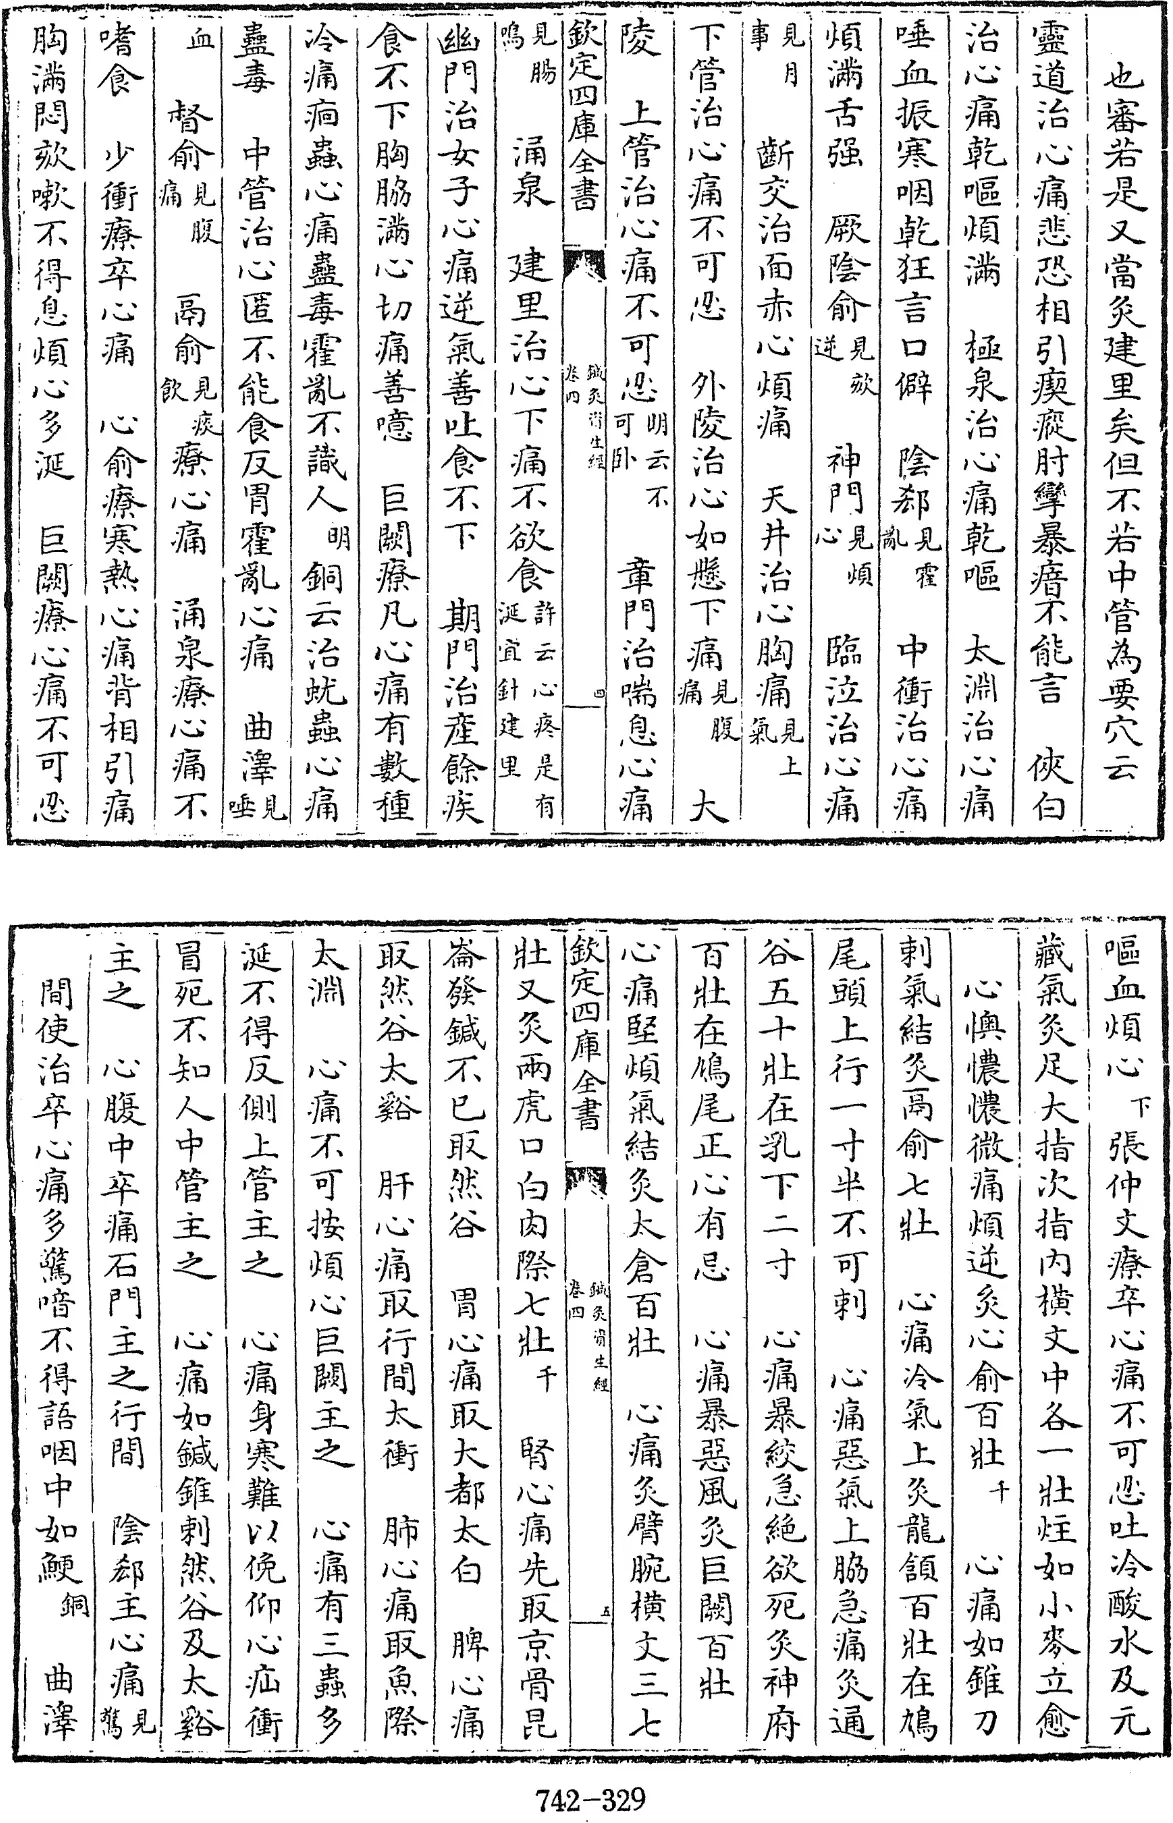 也審若是又當灸建里矣但不若中管為要穴云
靈道治心痛悲恐相引瘈瘲肘攣暴瘖不能言　俠白
治心痛乾嘔煩滿　極泉治心痛乾嘔　太淵治心痛
唾血振寒咽乾狂言口僻　陰郄見霍亂　中衝治心痛
煩滿舌强　厥陰俞見欬逆　神門見煩心　臨泣治心痛
見月事　齗交治面赤心煩痛　天井治心胸痛見上氣
下管治心痛不可忍　外陵治心如懸下痛見腹痛　大
陵　上管治心痛不可忍明云不可卧　章門治喘息心痛
欽定四庫全書　鍼灸資生經卷四　四
見腸鳴　涌泉　建里治心下痛不欲食許云心疼是有涎宜針建里
幽門治女子心痛逆氣善吐食不下　期門治産餘疾
食不下胸脇滿心切痛善噫　巨闕療凡心痛有數種
冷痛疴蟲心痛蠱毒霍亂不識人明　銅云治蚘蟲心痛
蠱毒　中管治心匿不能食反胃霍亂心痛　曲澤見唾
血　督俞見腹痛　鬲俞見痰飲療心痛　涌泉療心痛不
嗜食　少衝療卒心痛　心俞療寒熱心痛背相引痛
胸滿悶欬嗽不得息煩心多涎　巨闕療心痛不可忍
嘔血煩心下　張仲文療卒心痛不可忍吐冷酸水及元
藏氣灸足大指次指内横文中各一壯炷如小麥立愈
心懊憹微痛煩逆灸心俞百壯千　心痛如錐刀
刺氣結灸鬲俞七壯　心痛冷氣上灸龍頷百壯在鳩
尾頭上行一寸半不可刺　心痛惡氣上脇急痛灸通
谷五十壯在乳下二寸　心痛暴絞急絶欲死灸神府
百壯在鳩尾正心有忌　心痛暴惡風灸巨闕百壯
心痛堅煩氣結灸太倉百壯　心痛灸臂腕横文三七
欽定四庫全書　鍼灸資生經卷四　五
壯又灸兩虎口白肉際七壯千　腎心痛先取京骨昆
崙發鍼不已取然谷　胃心痛取大都太白　脾心痛
取然谷太谿　肝心痛取行間太衝　肺心痛取魚際
太淵　心痛不可按煩心巨闕主之　心痛有三蟲多
涎不得反側上管主之　心痛身寒難以俛仰心疝衝
冒死不知人中管主之　心痛如鍼錐刺然谷及太谿
主之　心腹中卒痛石門主之行間　陰郄主心痛見驚
間使治卒心痛多驚喑不得語咽中如鯁銅　曲澤
742-329